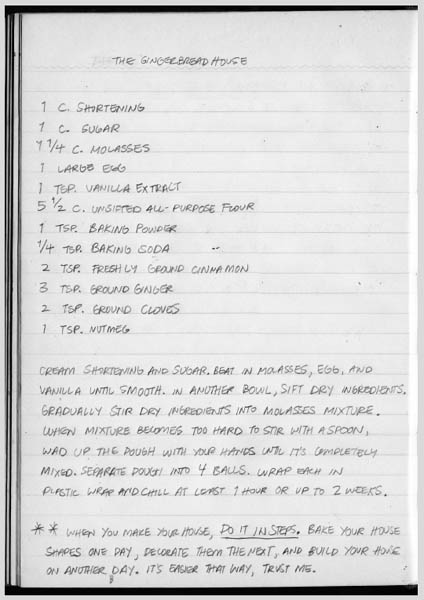 THE GINGERBREAD HOUSE
1 C. SHORTENING
1 C. SUGAR
1 1/4 C. MOLASSES
1 LARGE EGG
1 TSP. VANILLA EXTRACT
5 1/2 C. UNSIFTED ALL-PURPOSE FLOUR
1 TSP. BAKING POWDER
1/4 TSP. BAKING SODA
2 TSP. FRESHLY GROUND CINNAMON
3 TSP. GROUND GINGER
2 TSP. GROUND CLOVES
1 TSP. NUTMEG
CREAM SHORTENING AND SUGAR. BEAT IN MOLASSES, EGG, AND
VANILLA UNTIL SMOOTH. IN ANOTHER BOWL, SIFT DRY INGREDIENTS.
GRADUALLY STIR DRY INGREDIENTS INTO MOLASSES MIXTURE.
WHEN MIXTURE BECOMES TOO HARD TO STIR WITH A SPOON,
WAD UP THE DOUGH WITH YOUR HANDS UNTIL IT'S COMPLETELY
MIXED. SEPARATE DOUGH INTO 4 BALLS. WRAP EACH IN
PLASTIC WRAP AND CHILL AT LEAST 1 HOUR OR UP TO 2 WEEKS.
** WHEN YOU MAKE YOUR HOUSE, DO IT IN STEPS. BAKE YOUR HOUSE
SHAPES ONE DAY, DECORATE THEM THE NEXT, AND BUILD YOUR HOUSE
ON ANOTHER DAY. IT'S EASIER THAT WAY, TRUST ME.